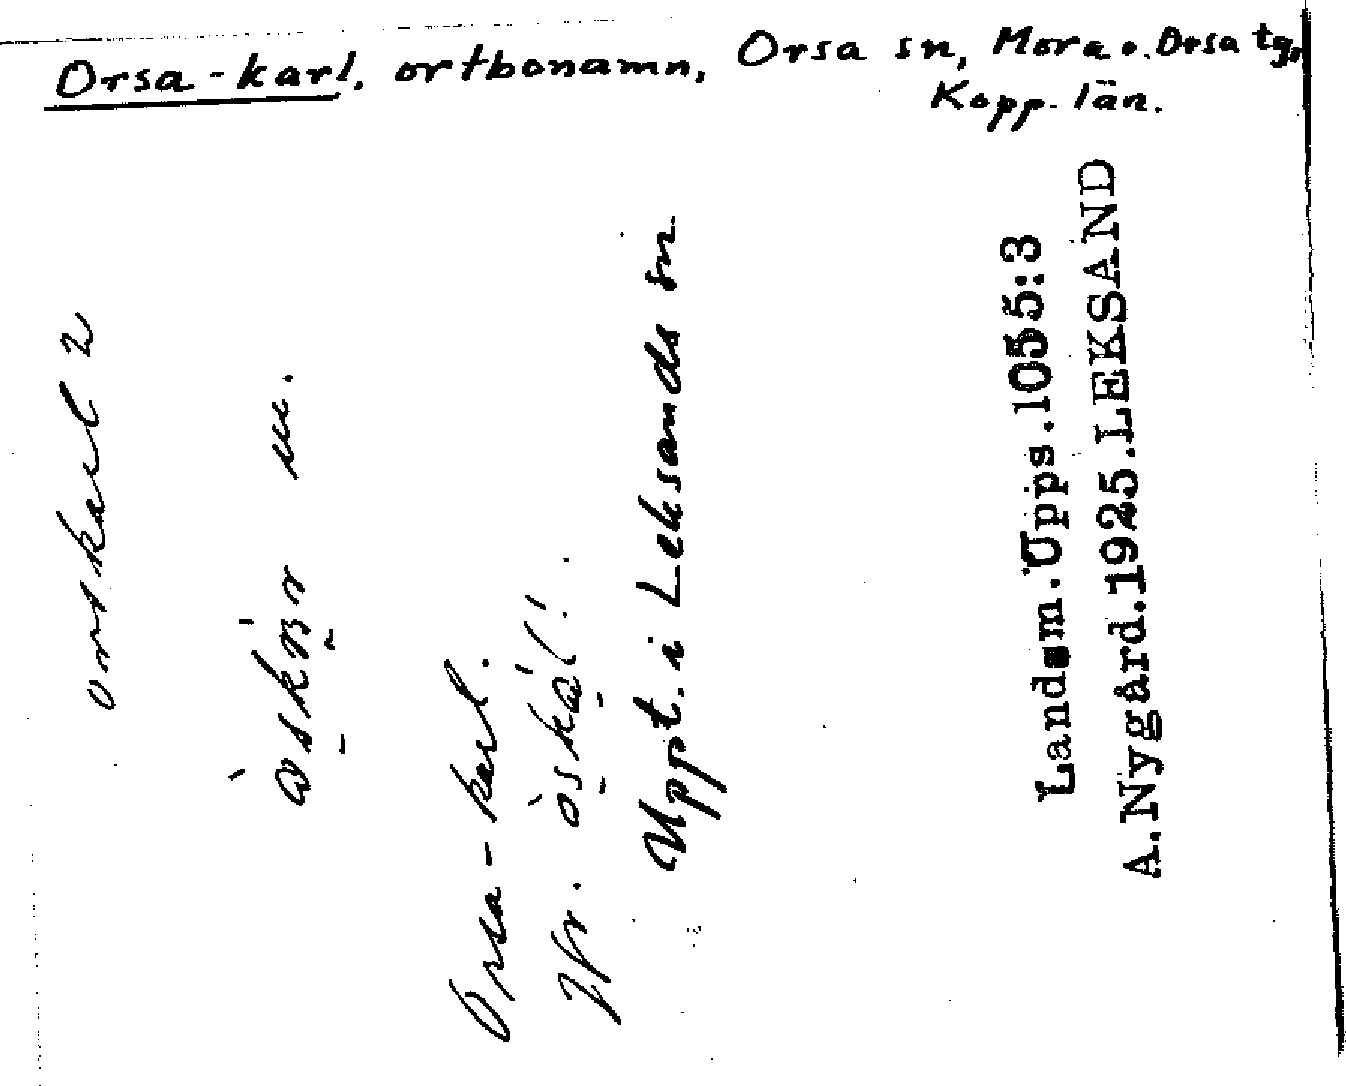 Orsa-karl, ortbonamn, Orsa sn, Mora o. Orsa tg,
Kopp. län.
orskarl 2
m.
Orsa-karl.
Jfr.
Uppt. i Leksands sn
Landsm. Upps. 1055:3
A. Nygård. 1925. LEKSAND